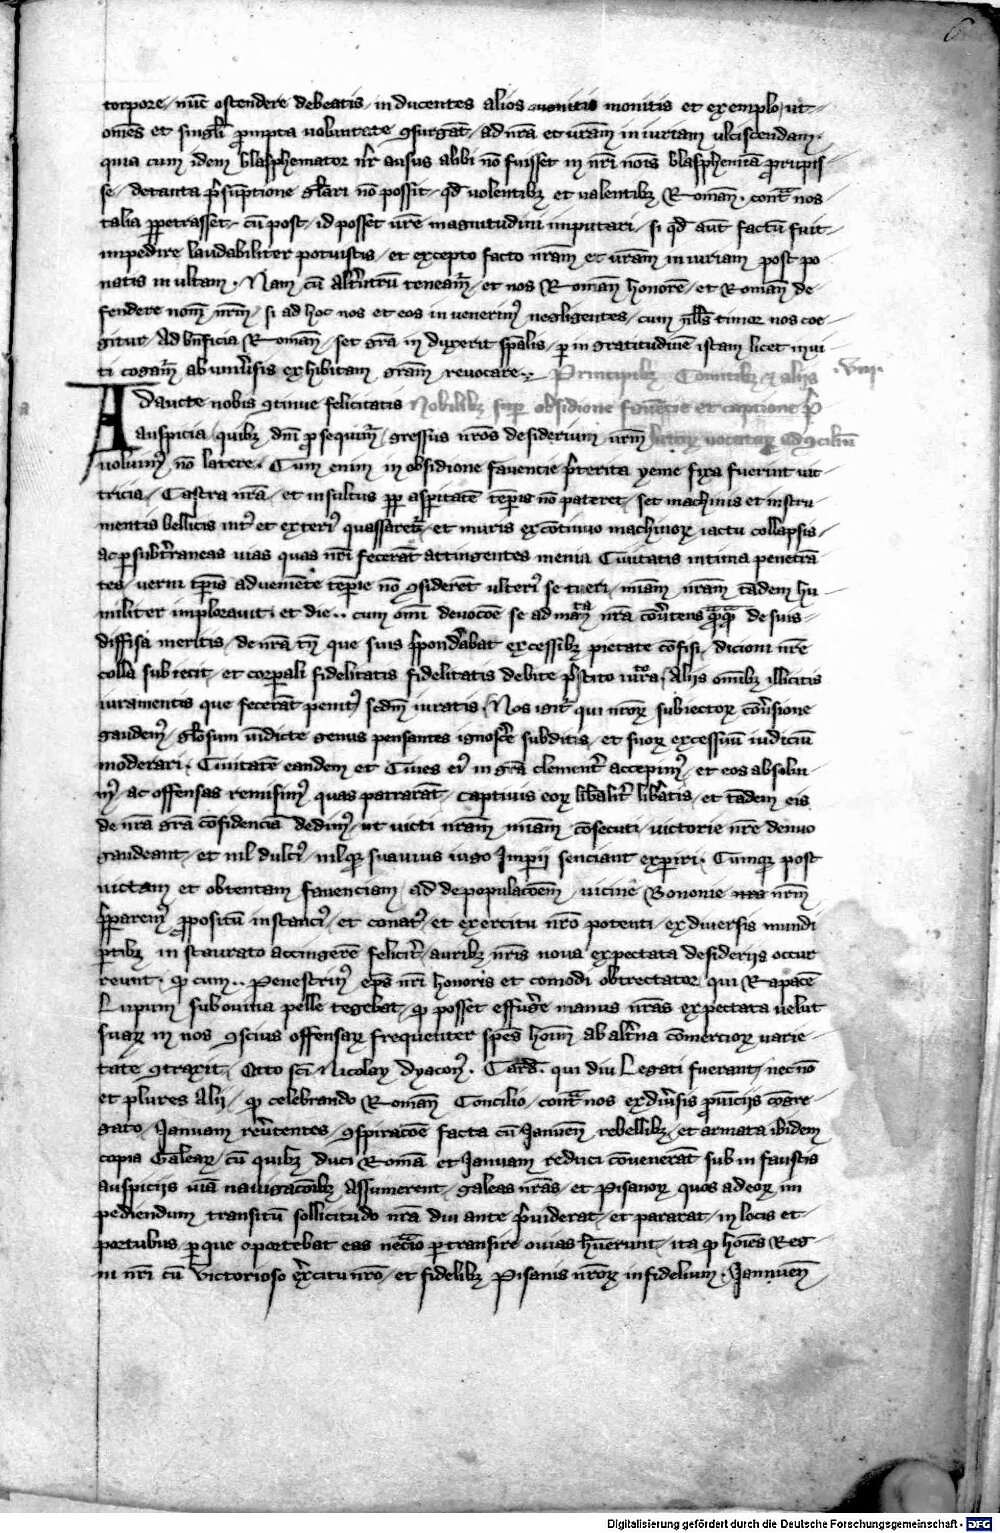 6
torpore / nūc ostendere debeatis / inducentes alios monitis monitis et exemplo / ut
om̄es et singl̄i p̄mpta uoluntate ꝯsurgāt / ad nr̄ā et ur̄am iniuriam ulciscendam .
quia cum idem blasphemator nr̄ ausus alibi nō fuisset in nr̄i noīs blasphemiā prupis
se / de tanta p̄sūptione gl̄ari nō possit / qd̄ uolentibꝫ et ualentibꝫ Romañ . cont̄ nos
talia ꝑpetrasset / cū post id posset ur̄e magnitudini imputari / si qd̄ aūt factū fuit
impedire laudabiliter potuistis / et excepto facto nr̄am et ur̄am iniuriam post po
natis inultam . Nam cū alt̄utrū teneam̄ / et nos Romañ honorē / et Romañ de
fendere nom̄ nr̄m / si ad hoc nos et eos inuenerimꝰ negligentes / cum nll̄s timor nos coe
gitur / ad bn̄ficia Romañ / set gr̄a induxerit sp̄alis / ꝑ ingratitudinē istam licet inui
ti cogam̄ ab uniuersis exhibitam gram̄ reuocare . Principibꝫ Comitibꝫ ⁊ aliis . viij .
Adaucte nobis ꝯtinue felicitatis Nobilibꝫ sup obsidione fauencie et captione p̄
auspicia / quibꝫ dn̄i ꝓsequim̄ / gressus nr̄os desiderium ur̄m uocatoꝝ ad ꝯciliū
uoluimꝰ nō latere . Cum enim in obsidione fauentie p̄terita yeme fixa fuerint uic
tricia / Castra nr̄a / et insultus ꝓp asp̄itatē tēpis nō pateret / set machinis et instru
mentis bellicis intꝰ et exteriꝰ quassaret̄ / et muris ex cōtinuo machinoꝝ iactu collapsis /
ac ꝑ subt̄raneas uias quas nr̄i fecerāt attingentes menia Ciuitatis intima penetrā
tes / ueri tp̄is adueniēte tēperie nō ꝯsideret ulteriꝰ se tueri / miam̄ nr̄am tādem hu
militer implorauit . et die .. cum om̄i deuocōe se ad mañ nr̄a cōuertens de suis
diffisa meritis / de nr̄a tn̄ que suis p̄pond̄abat excessibꝫ pietate cōfisi / dicioni nr̄e
colla subiecit / et corꝑali fidelitatis fidelitatis debite p̄stito iur̄o / Aliis om̄ibꝫ illicitis
iuramentis que fecerāt penitꝰ iuratis . Nos igit̄ qui nr̄oꝝ subiectoꝝ cōu̓sione
gaudemꝰ / gl̄osum uindicte genus pensantes ignosce̓ subditis / et suoꝝ excessuū iudiciū
moderari . Ciuitatē eandem et Ciues eiꝰ in grā clement̓ accepimꝰ / et eos absolui
mꝰ / ac offensas remisimꝰ quas patrarāt / captiuis eoꝝ lib̄alit̄ lib̄atis / et tādem eis
de nr̄a grā cōfidenciā dedimꝰ / ut uicti nr̄am miam̄ cōsecuti / uictorie nr̄e denuo
gaudeant / et nil dulciꝰ / nilqꝫ suauius iugo Imꝑii senciant exꝑiri . Cumqꝫ post
uictam et obtentam fauenciam / ad depopulacōem̄ / uicine Bononie nr̄m
p̄pararemꝰ ꝓpositū instanciꝰ / et conatꝰ / et exercitu nr̄o potenti / ex diuersis mundi
ꝑtibꝫ instaurato accingere felicit̄ / auribꝫ nr̄is noua expectata desideriis occur
rerunt . qꝫ cum .. Penestrinꝰ ep̄s nr̄i honoris et comodi obtrectator / qui Rapacē
Lupum sub ouina pelle tegebat / qꝫ posset effuge̓ manus nr̄as expectata uelut
suaꝝ in nos ꝯscius offensaꝝ frequenter spēs hoīm ab alt̄na cōmercioꝝ uarie
tate ꝯtraxit / Otto sc̄i Nicolay dyaconꝰ . Card̄ . qui diu Legati fuerant / necnō
et plures Alii / qꝫ celebrando Romañ Concilio / cont̄ nos ex diu̓sis ꝓuinciis cōgre
gato / Januam reu̓tentes / ꝯspiracōe facta cū Januen̄ rebellibꝫ / et armata ibidem
copia Galeaꝝ / cū quibꝫ duci Romā et Januam reduci cōuenerāt sub infaustis
auspiciis uiā nauigacōibꝫ assumerent / galeas nr̄as / et Pisanoꝝ quos ad eoꝝ im
pediendum transitū sollicitudo nr̄a diu ante p̄uiderat / et pararat / in locis et
portubus / ꝑ que oportebat eas ꝑtransire ouias hūerunt / ita qꝫ hoīes Reg
ni nr̄i cū victorioso ex̓citu nr̄o / et fidelibꝫ Pisanis nr̄oꝝ infidelium . Jannuen̄
Digitalisierung gefördert durch die Deutsche Forschungsgemeinschaft - DFG